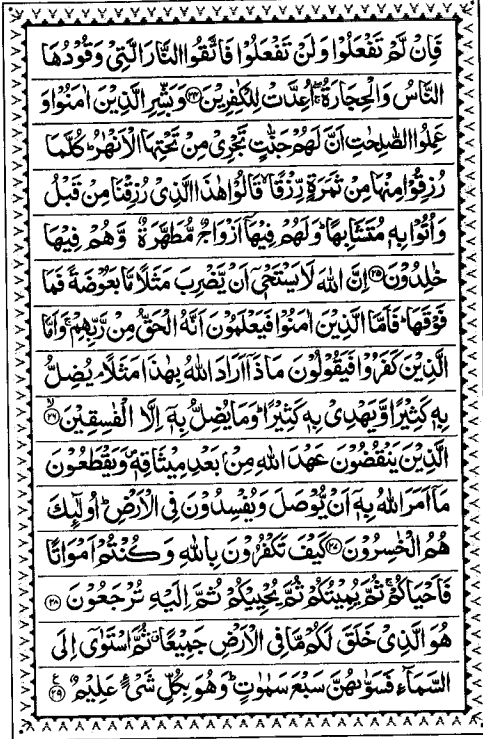 فَاِنْ لَّمْ تَفْعَلُوْا وَلَنْ تَفْعَلُوْا فَاتَّقُوا النَّارَ الَّتِیْ وَقُوْدُهَا
النَّاسُ وَالْحِجَارَةُ ۖۚ اُعِدَّتْ لِلْكٰفِرِیْنَ ۝۲۴ وَبَشِّرِ الَّذِیْنَ اٰمَنُوْا وَ
عَمِلُوا الصّٰلِحٰتِ اَنَّ لَهُمْ جَنّٰتٍ تَجْرِیْ مِنْ تَحْتِهَا الْاَنْهٰرُ ؕ كُلَّمَا
رُزِقُوْا مِنْهَا مِنْ ثَمَرَةٍ رِّزْقًا ۙ قَالُوْا هٰذَا الَّذِیْ رُزِقْنَا مِنْ قَبْلُ
وَاُتُوْا بِهٖ مُتَشَابِهًا ؕ وَلَهُمْ فِیْهَاۤ اَزْوَاجٌ مُّطَهَّرَةٌ وَّهُمْ فِیْهَا
خٰلِدُوْنَ ۝۲۵ اِنَّ اللّٰهَ لَا یَسْتَحْیٖۤ اَنْ یَّضْرِبَ مَثَلًا مَّا بَعُوْضَةً فَمَا
فَوْقَهَا ؕ فَاَمَّا الَّذِیْنَ اٰمَنُوْا فَیَعْلَمُوْنَ اَنَّهُ الْحَقُّ مِنْ رَّبِّهِمْ ۚ وَاَمَّا
الَّذِیْنَ كَفَرُوْا فَیَقُوْلُوْنَ مَاذَاۤ اَرَادَ اللّٰهُ بِهٰذَا مَثَلًا ۘ یُضِلُّ
بِهٖ كَثِیْرًا وَّیَهْدِیْ بِهٖ كَثِیْرًا ؕ وَمَا یُضِلُّ بِهٖۤ اِلَّا الْفٰسِقِیْنَ ۝۲۶ۙ
الَّذِیْنَ یَنْقُضُوْنَ عَهْدَ اللّٰهِ مِنْۢ بَعْدِ مِیْثَاقِهٖ ۪ وَیَقْطَعُوْنَ
مَاۤ اَمَرَ اللّٰهُ بِهٖۤ اَنْ یُّوْصَلَ وَیُفْسِدُوْنَ فِی الْاَرْضِ ؕ اُولٰٓئِكَ
هُمُ الْخٰسِرُوْنَ ۝۲۷ كَیْفَ تَكْفُرُوْنَ بِاللّٰهِ وَكُنْتُمْ اَمْوَاتًا
فَاَحْیَاكُمْ ۚ ثُمَّ یُمِیْتُكُمْ ثُمَّ یُحْیِیْكُمْ ثُمَّ اِلَیْهِ تُرْجَعُوْنَ ۝۲۸
هُوَ الَّذِیْ خَلَقَ لَكُمْ مَّا فِی الْاَرْضِ جَمِیْعًا ۗ ثُمَّ اسْتَوٰۤی اِلَی
السَّمَآءِ فَسَوّٰىهُنَّ سَبْعَ سَمٰوٰتٍ ؕ وَهُوَ بِكُلِّ شَیْءٍ عَلِیْمٌ ۝۲۹ ع